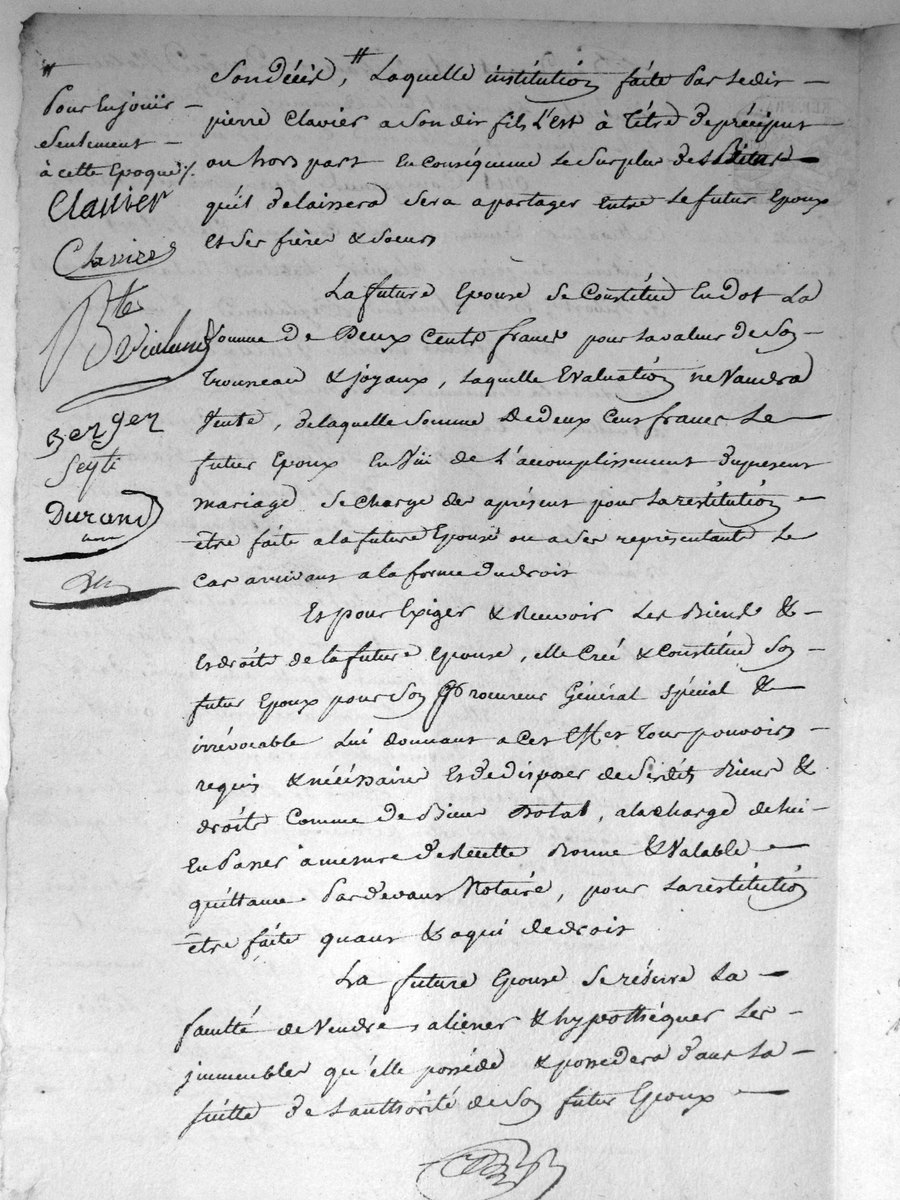 #
pour en jouir
seulement
à cette Epoque /.
Clavier
Clavier
Bte Vialand
Berger
Seyti
Durand
son décès, # Laquelle institution faite par ledit
pierre Clavier a son dit fils l'est à titre de préciput
ou hors part En conséquence le surplus des
qu'il delaissera sera a partager Entre le futur Epoux
Et ses frère & soeurs
La future Epouse se Constitue En dot La
somme de Deux Cents francs pour la valeur de son
Trousseau & joyaux, laquelle Evaluation ne Vaudra
Vente, de laquelle somme de deux Cens francs Le
futur Epoux En Vüe de L'accomplissement du present
mariage se charge des aprésent pour la restitution
être faite a la future Epouse ou a ses représentants Le
cas arrivant a la forme du droit
Et pour Exiger & Recevoir Les Biens &
Et droits de la future Epouse, elle Creé & Constitue son
futur Epoux pour son Procureur Général spécial &
irrévocable Lui donnant a Cet Effet Tous pouvoirs
requis & nécéssaires Et de disposer de ses dits Biens &
droits Comme de Biens Dotal, a la charge de lui
En Passer a mesure de Recette Bonne & Valable
quittance Pardevant Notaire, pour La restitution
être faite quant & a qui de droit
La future Epouse se réserve La
faculté de Vendre aliener & hypothéquer Les
immeubles qu'elle posséde & possedera dans La
suitte de L'authorité de son futur Epoux